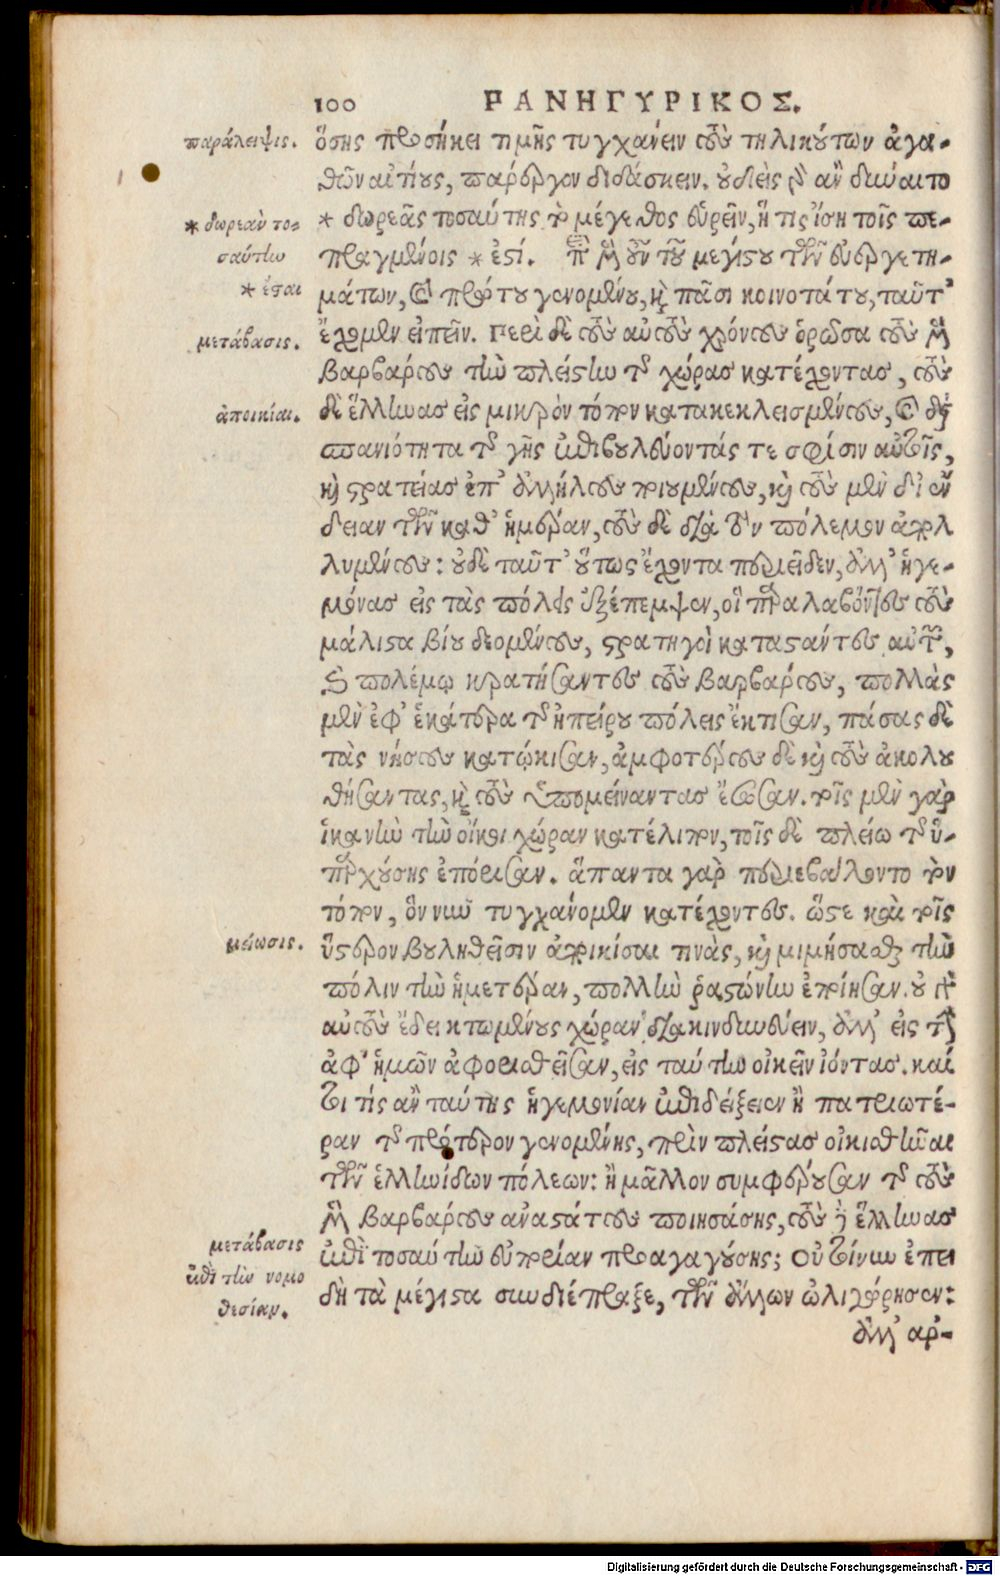 100 ΠΑΝΗΓΥΡΙΚΟΣ.
παράλειψις.
ὅσης προσήκει τιμῆς τυγχάνειν τοὺς τηλικούτων ἀγα-
θῶν αἰτίους, πάρεργον διδάσκειν. οὐδεὶς γὰρ ἂν δύναιτο
* δωρεὰν το-
σαύτην
* ἔσται
* δωρεᾶς τοσαύτης τὸ μέγεθος εὑρεῖν, ἥτις ἴση τοῖς πε-
πραγμένοις * ἐστί. περὶ μὲν οὖν τοῦ μεγίστου τῶν εὐεργετη-
μάτων, καὶ πρώτου γενομένου, καὶ πᾶσι κοινοτάτου, ταῦτ'
μετάβασις.
ἔχομεν εἰπεῖν. Περὶ δὲ τοὺς αὐτοὺς χρόνους ὁρῶσα τοὺς μὲν
βαρβάρους τὴν πλείστην τῆς χώρας κατέχοντας, τοὺς
ἀποικίαι.
δὲ ἕλληνας εἰς μικρὸν τόπον κατακεκλεισμένους, καὶ διὰ
σπανιότητα τῆς γῆς ἐπιβουλεύοντάς τε σφίσιν αὐτοῖς,
καὶ στρατείας ἐπ' ἀλλήλους ποιουμένους, καὶ τοὺς μὲν δι' ἔν
δειαν τῶν καθ' ἡμέραν, τοὺς δὲ διὰ τὸν πόλεμον ἀπολ
λυμένους: οὐδὲ ταῦτ' οὕτως ἔχοντα περιεῖδεν, ἀλλ' ἡγε-
μόνας εἰς τὰς πόλεις ἐξέπεμψεν, οἳ παραλαβόντες τοὺς
μάλιστα βίου δεομένους, στρατηγοὶ καταστάντες αὐτῶν,
καὶ πολέμῳ κρατήσαντες τοὺς βαρβάρους, πολλὰς
μὲν ἐφ' ἑκάτερα τῆς ἠπείρου πόλεις ἔκτισαν, πάσας δὲ
τὰς νήσους κατῴκισαν, ἀμφοτέρους δὲ καὶ τοὺς ἀκολου
θήσαντας, καὶ τοὺς ὑπομείναντας ἔσωσαν. τοῖς μὲν γὰρ
ἱκανὴν τὴν οἴκοι χώραν κατέλιπον, τοῖς δὲ πλείω τῆς ὑ-
παρχούσης ἐπόρισαν. ἅπαντα γὰρ περιεβάλοντο τὸν
τόπον, ὃν νῦν τυγχάνομεν κατέχοντες. ὥστε καὶ τοῖς
μείωσις.
ὕστερον βουληθεῖσιν ἀποικίσαι τινὰς, καὶ μιμήσασθαι τὴν
πόλιν τὴν ἡμετέραν, πολλὴν ῥαστώνην ἐποίησαν. οὐ γὰρ
αὐτοὺς ἔδει κτωμένους χώραν διακινδυνεύειν, ἀλλ' εἰς τὴν
ἀφ' ἡμῶν ἀφορισθεῖσαν, εἰς ταύτην οἰκεῖν ἰόντας. καί
τοι τίς ἂν ταύτης ἡγεμονίαν ἐπιδείξειεν ἢ πατριωτέ-
ραν τῆς πρότερον γενομένης, πρὶν πλείστας οἰκισθῆναι
τῶν ἑλληνίδων πόλεων: ἢ μᾶλλον συμφέρουσαν τῆς τοὺς
μὲν βαρβάρους ἀναστάτους ποιησάσης, τοὺς δὲ ἕλληνας
μετάβασις
ἐπὶ τὴν νομο
θεσίαν.
ἐπὶ τοσαύτην εὐπορίαν προαγαγούσης; Οὐ τοίνυν ἐπει
δὴ τὰ μέγιστα συνδιέπραξε, τῶν ἄλλων ὠλιγώρησεν:
ἀλλ' ἀρ-
Digitalisierung gefördert durch die Deutsche Forschungsgemeinschaft - DFG